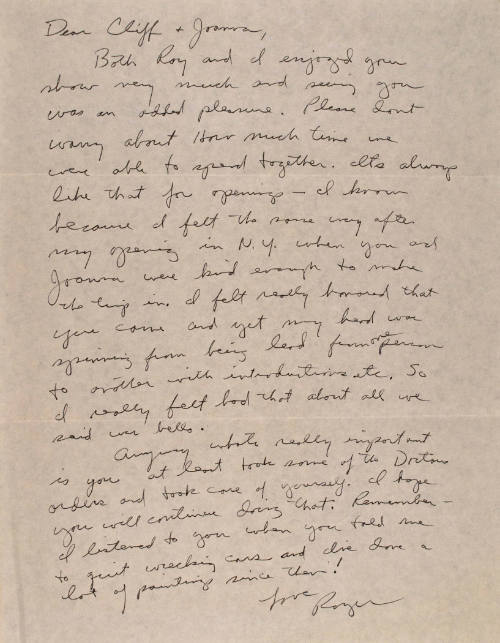 Dear Cliff + Joanna,
Both Roy and I enjoyed your
show very much and seeing you
was an added pleasure. Please don't
worry about How much time we
were able to spend together. It's always
like that for openings — I know
because I felt the same way after
my opening in N.Y. when you and
Joanna were kind enough to make
the trip in. I felt really honored that
you came and yet my head was
spinning from being lead from one person
to another with introductions etc. So
I really felt bad that about all we
said was hello.
Anyway whats really important
is you at least took some of the Doctors
orders and took care of yourself. I hope
you will continue doing that. Remember —
I listened to you when you told me
to quit wrecking cars and I've done a
lot of paintings since then!
Love
Roger